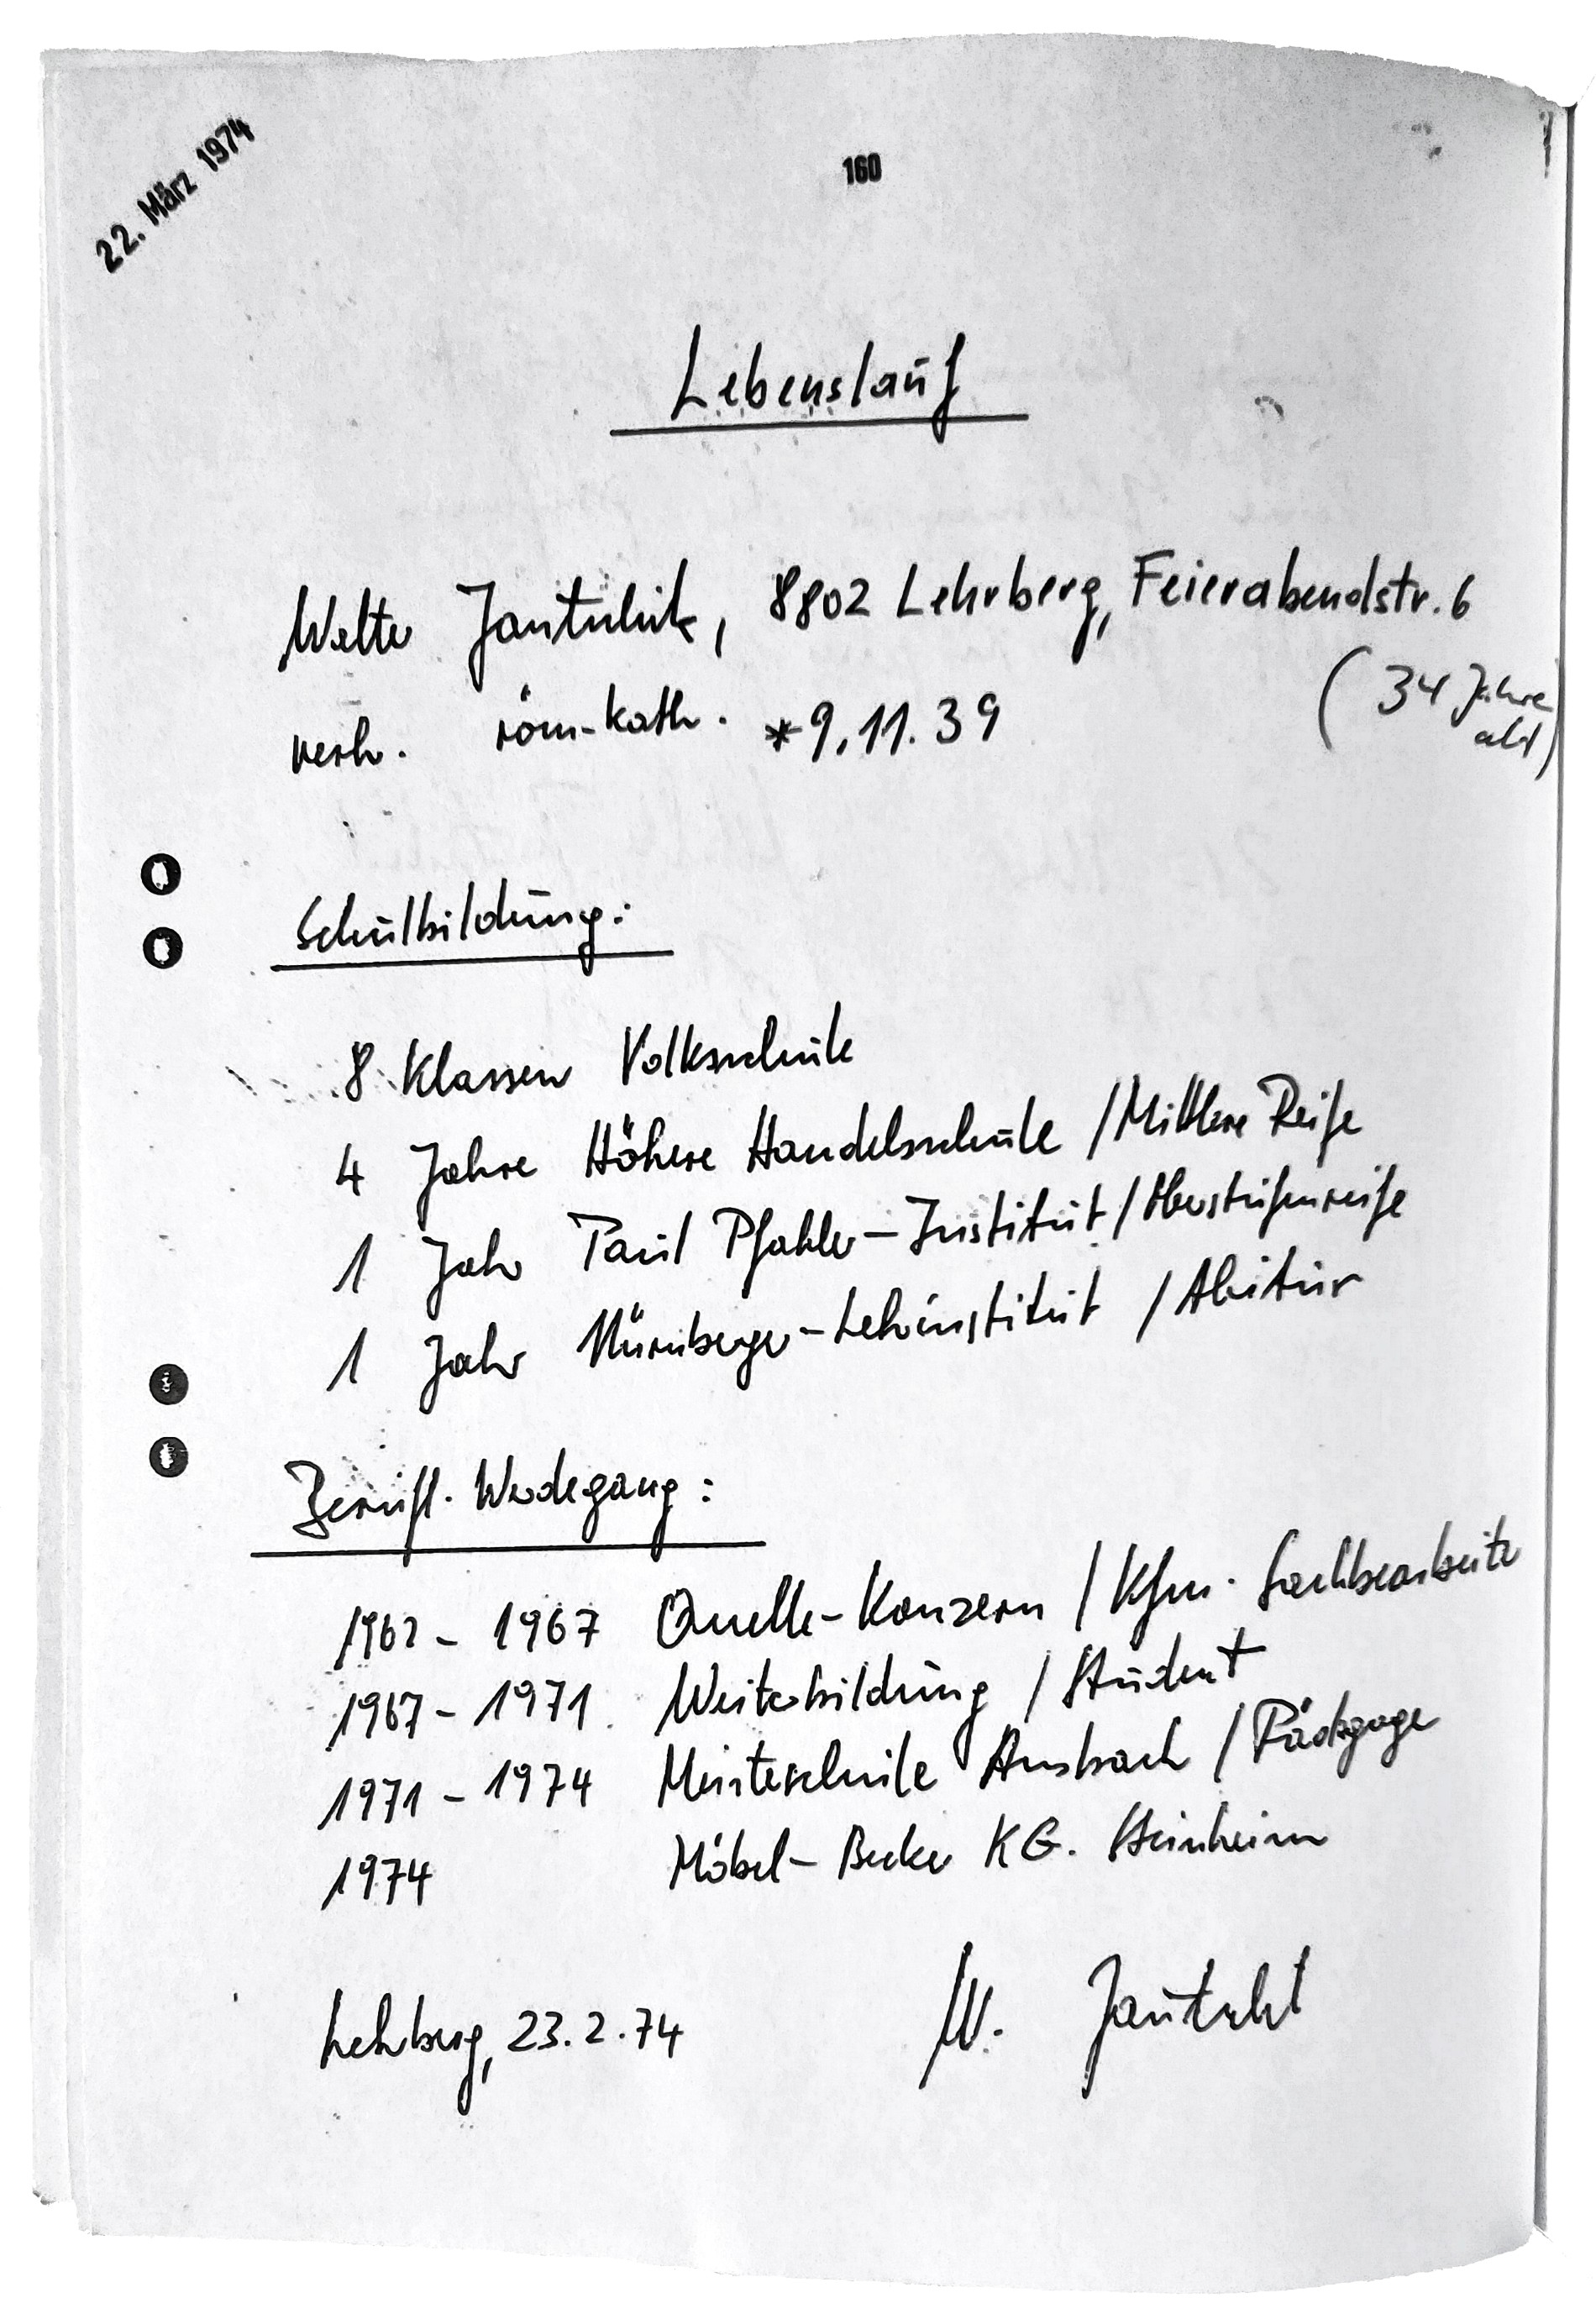 22. März 1974
160
Lebenslauf
Walter Jautelat, 8802 Lehrberg, Feierabendstr. 6
verh. röm-kath. *9.11.39
(34 Jahre
alt)
Schulbildung:
8 Klassen Volksschule
4 Jahre Höhere Handelsschule / Mittlere Reife
1 Jahr Paul Pfahler-Institut / Oberstufenreife
1 Jahr Nürnberger-Lehrinstitut / Abitur
Berufl. Werdegang:
1962 - 1967 Quelle-Konzern / Kfm. Sachbearbeiter
1967 - 1971 Weiterbildung / Student
1971 - 1974 Meisterschule Ansbach / Pädagoge
1974 Möbel-Becker KG. Steinheim
Lehrberg, 23.2.74 W.